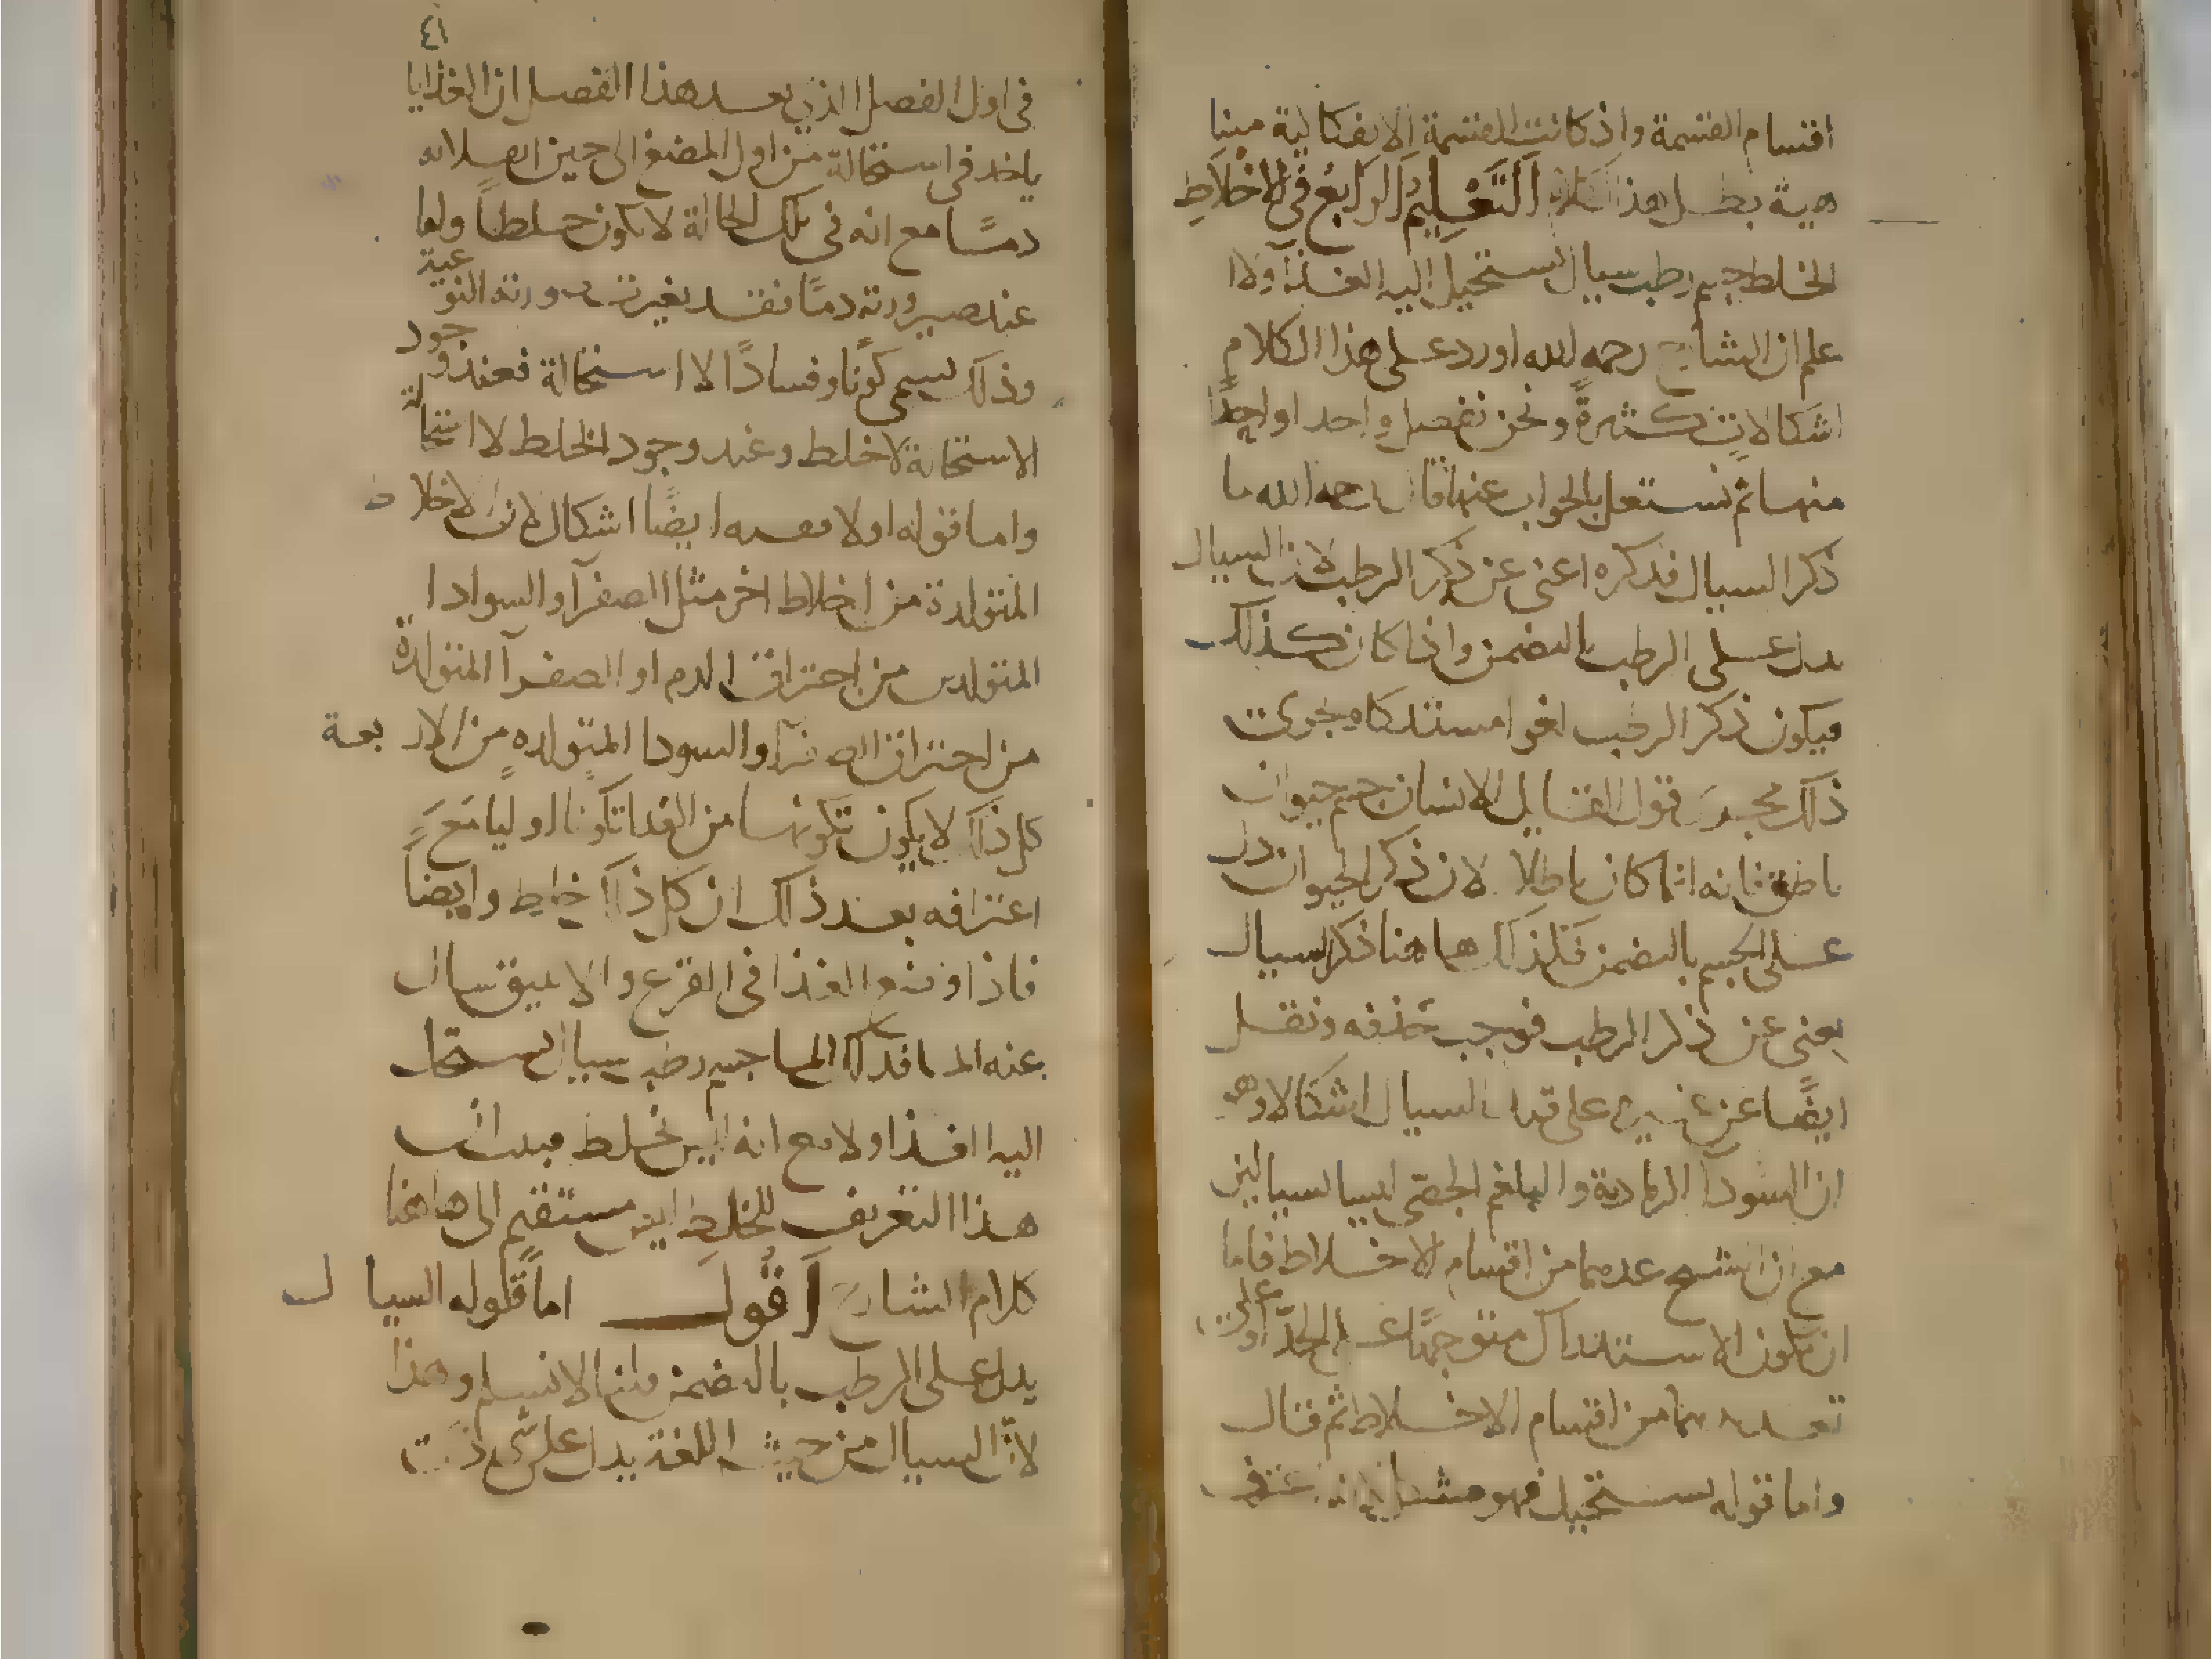 اقسام القسمة واذ كانت القسمة الانفكاكية متنا
هية بطل هذا التعليم الرابع في الاخلاط
الخلط جسم رطب سيال يستحيل اليه الغذا اولا ا
علم ان الشارح رحمه الله اورد على هذا الكلام
اشكالات كثيرة ونحن نفصل واحدا واحدا
منها ثم نستعمل بالجواب عنها قال رحمه الله ما
ذكر السيال فذكره اغنى عن ذكر الرطب لان السيال
يدل على الرطب بالتضمن واذا كان كذلك
فيكون ذكر الرطب لغوا مستدركا ويجرى
ذلك مجرى قول القايل الانسان جسم حيوان
ناطق فانه انما كان باطلا لان ذكر الحيوان دل
على الجسم بالتضمن فكذلك هاهنا ذكر السيال
يغنى عن ذكر الرطب فوجب حذفه ونقل
ايضا عن غيره على قيد السيال اشكالا وهو
ان السودا الرمادية والبلغم الجصى ليسا بسيالين
مع ان الشيخ عدهما من اقسام الاخلاط فاما
ان يكون الاستدراك متوجها على الحد او على
تعديدهما من اقسام الاخلاط ثم قال
واما قوله يستحيل فهو مشكل لانه اعترف
٤١
في اول الفصل الذي بعد هذا الفصل ان الغذا يا
ياخذ في استحالة من اول المضغ الى حين انقلابه
دما مع انه في تلك الحالة لا يكون خلطا واما
عند صيرورته دما فقد تغيرت صورته النوعية
وذلك يسمى كونا وفسادا لا استحالة فعند وجود
الاستحالة لا خلط وعند وجود الخلط لا استحالة
واما قوله اولا ففيه ايضا اشكال لان الاخلاط
المتولدة من اخلاط اخر مثل الصفرا والسوادا
المتولدين من احتراق الدم او الصفرا المتولدة
من احتراق الصفرا والسودا المتولده من الاربعة
كل ذلك لا يكون تكونها من الغذا تكونا اوليا مع
اعترافه بعد ذلك ان كل ذلك خلط وايضا
فاذا وضع الغذا في القرع والانبيق سال
عنه الما فذلك الما جسم رطب سيال استحال
اليه الغذا اولا مع انه ليس بخلط فبدا ان
هذا التعريف للخلط ليس مستقيم الى هاهنا
كلام الشارح اقول اما قوله السيال
يدل على الرطب بالتضمن قلنا لا نسلم وهذا
لان السيال من حيث اللغة يدل على شي ذات